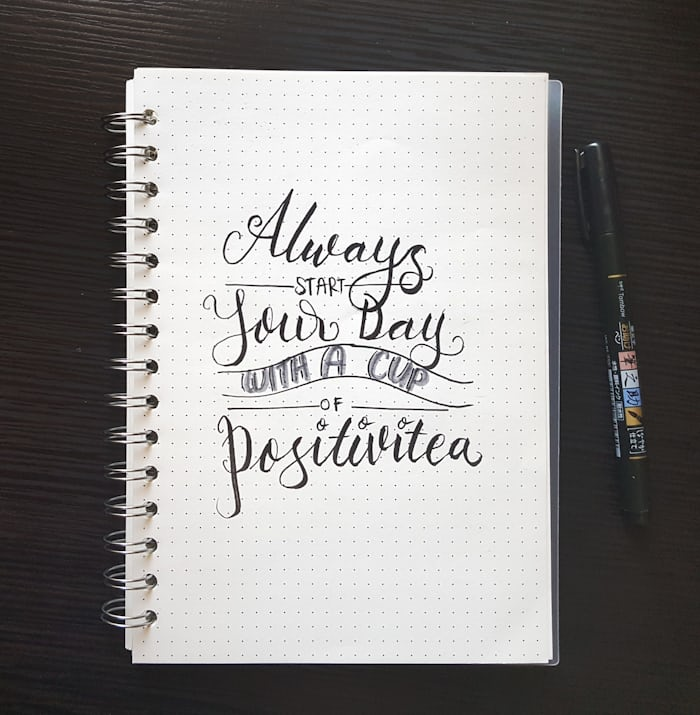 Always
START
Your Day
WITH A CUP
OF
Positivitea
Tombow
筆之助